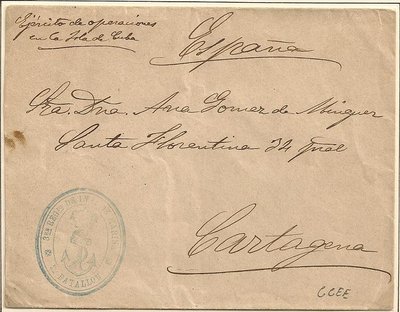 Ejército de operaciones
en la Isla de Cuba
España
Sra. Dña. Ana Gomez de Minguez
Santa Florentina 34 pral
Cartagena
3er REG
BATALLON
CCEE